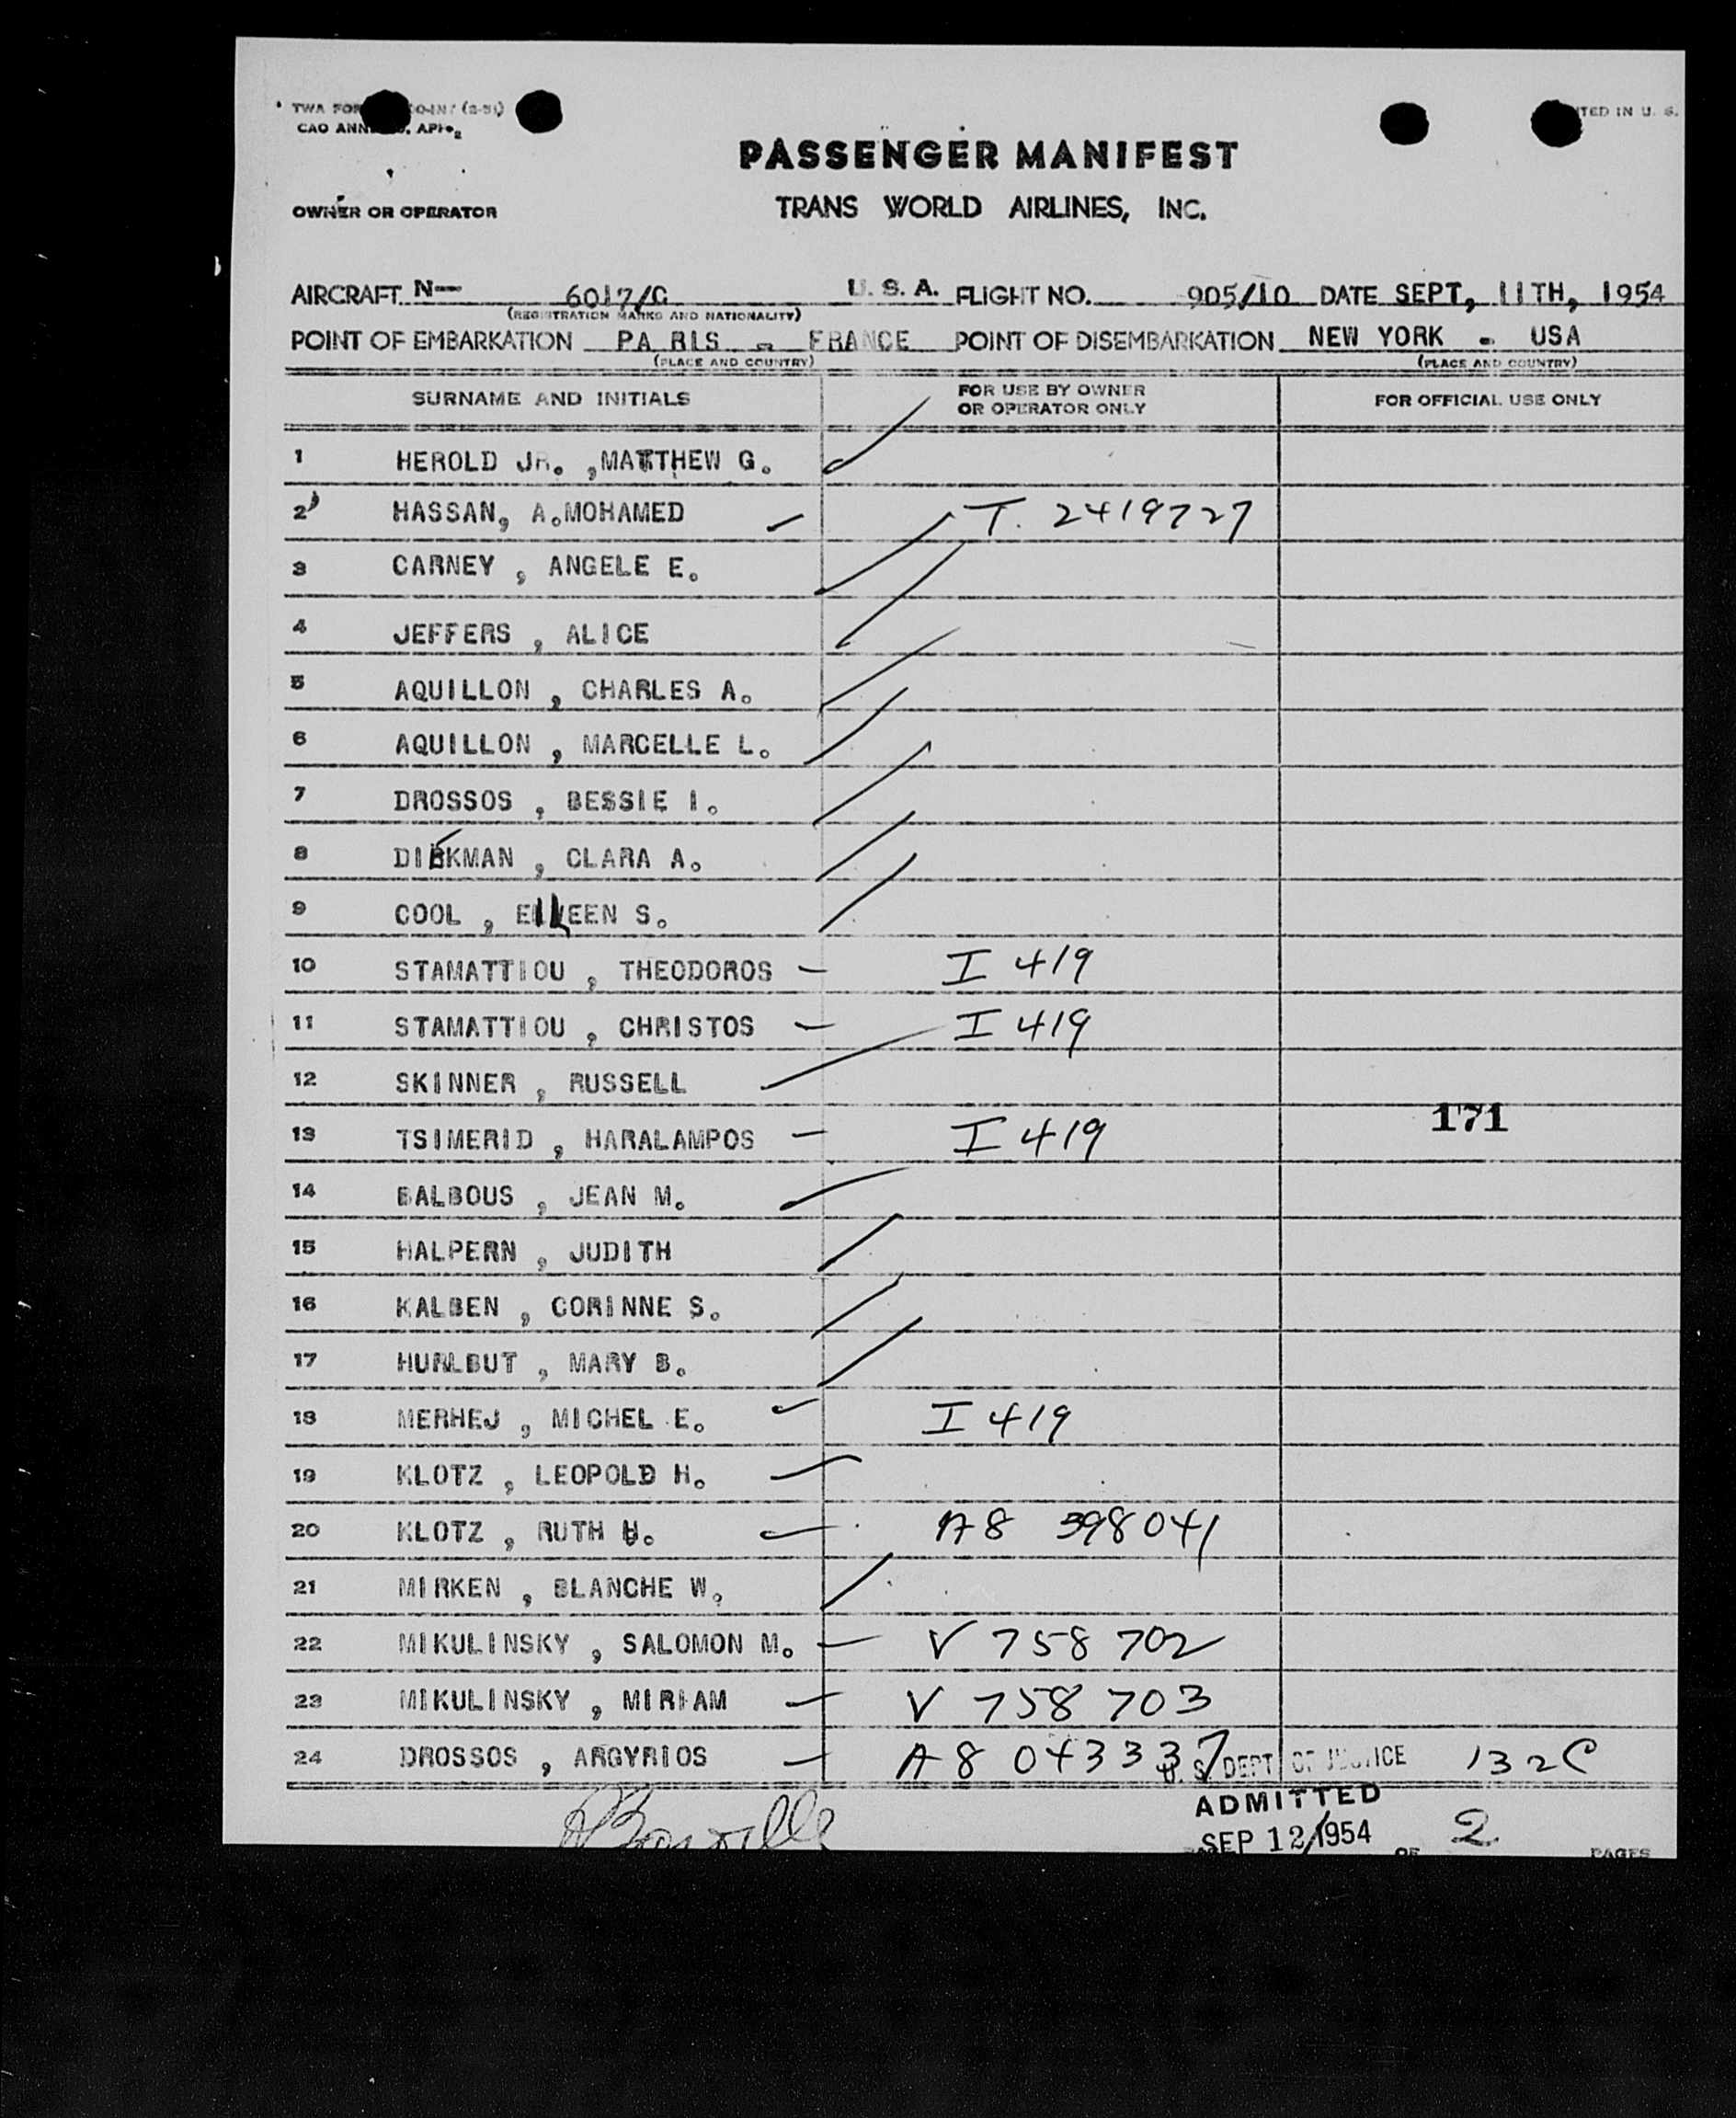 PASSENGER MANIFEST
TRANS WORLD AIRLINES, INC.
OWNER OR OPERATOR
AIRCRAFT N— 6017/C U. S. A. FLIGHT NO. 905/10 DATE SEPT, 11TH, 1954
(REGISTRATION MARKS AND NATIONALITY)
POINT OF EMBARKATION PA RIS - FRANCE POINT OF DISEMBARKATION NEW YORK - USA
(PLACE AND COUNTRY) (PLACE AND COUNTRY)
SURNAME AND INITIALS FOR USE BY OWNER OR OPERATOR ONLY FOR OFFICIAL USE ONLY
1 HEROLD JR. ,MATTHEW G.
2 HASSAN, A.MOHAMED T. 2419727
3 CARNEY , ANGELE E.
4 JEFFERS , ALICE
5 AQUILLON , CHARLES A.
6 AQUILLON , MARCELLE L.
7 DROSSOS , BESSIE I.
8 DIEKMAN , CLARA A.
9 COOL , EILEEN S.
10 STAMATTIOU , THEODOROS I 419
11 STAMATTIOU , CHRISTOS I 419
12 SKINNER , RUSSELL
171
13 TSIMERID , HARALAMPOS I 419
14 BALBOUS , JEAN M.
15 HALPERN , JUDITH
16 KALBEN , CORINNE S.
17 HURLBUT , MARY B.
18 MERHEJ , MICHEL E. I 419
19 KLOTZ , LEOPOLD H.
20 KLOTZ , RUTH H. A8 398041
21 MIRKEN , BLANCHE W.
22 MIKULINSKY , SALOMON M. V 758 702
23 MIKULINSKY , MIRIAM V 758 703
24 DROSSOS , ARGYRIOS A8 043337 U. S. DEPT OF JUSTICE 132C
ADMITTED
SEP 12 1954 OF 2 PAGES